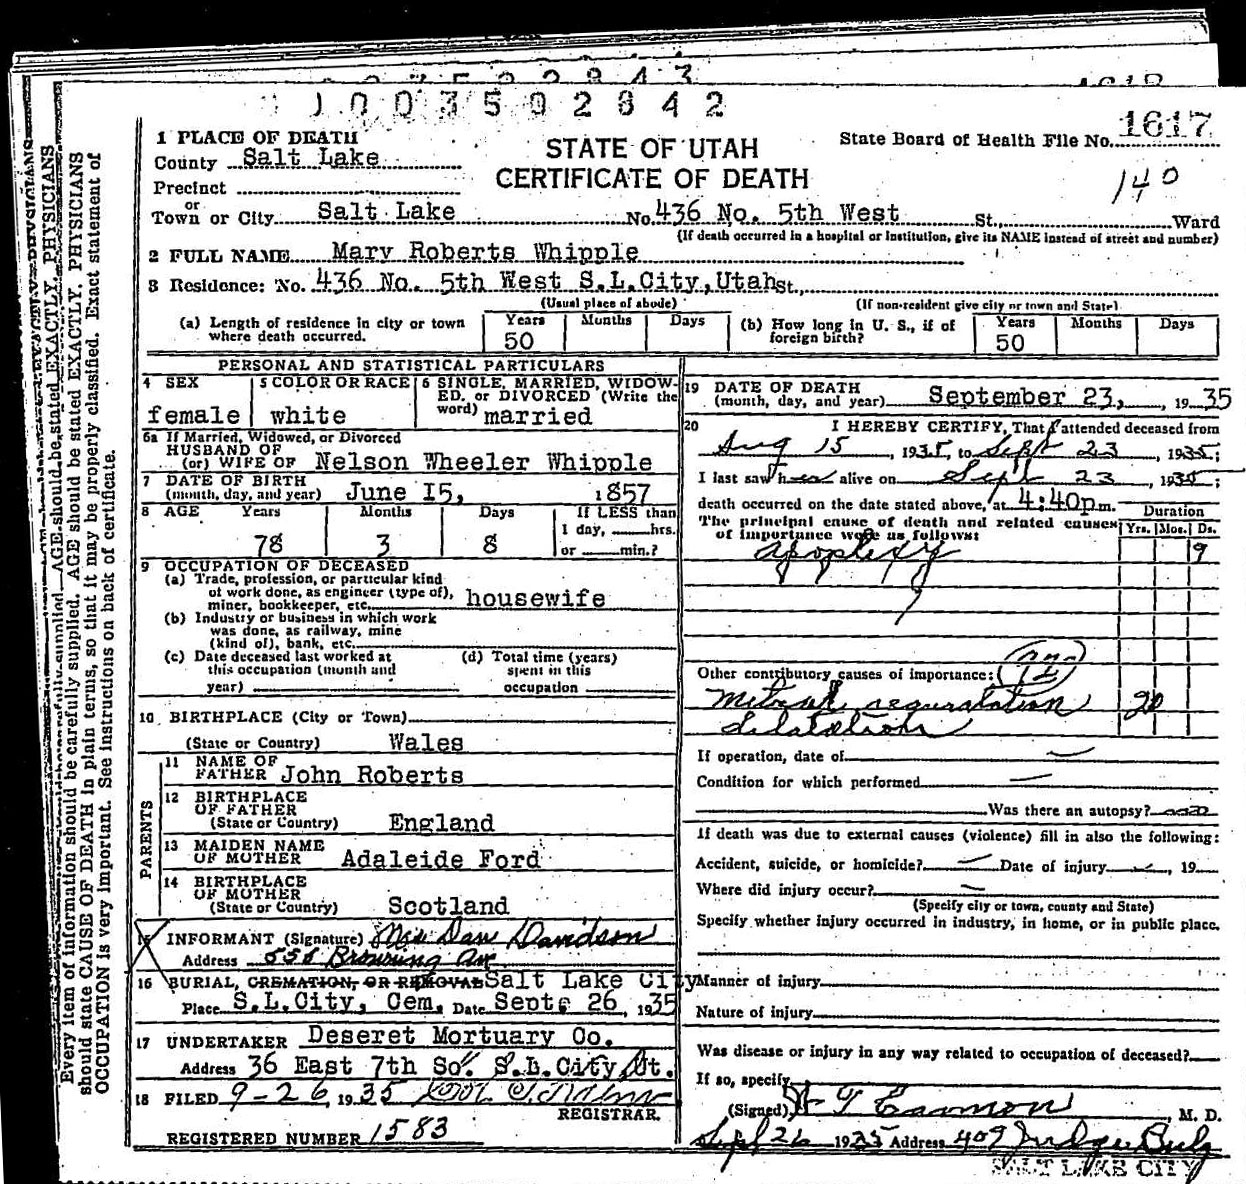 1003502842
1617
1 PLACE OF DEATH
County Salt Lake
STATE OF UTAH
CERTIFICATE OF DEATH
State Board of Health File No. 1617
140
Precinct
or
Town or City Salt Lake No. 436 No. 5th West St., Ward
(If death occurred in a hospital or institution, give its NAME instead of street and number)
2 FULL NAME Mary Roberts Whipple
3 Residence: No. 436 No. 5th West S.L.City,Utah St.,
(Usual place of abode) (If non-resident give city or town and State)
(a) Length of residence in city or town where death occurred. Years 50 Months Days
(b) How long in U. S., if of foreign birth? Years 50 Months Days
PERSONAL AND STATISTICAL PARTICULARS
4 SEX female
5 COLOR OR RACE white
6 SINGLE, MARRIED, WIDOW-
ED, or DIVORCED (Write the
word) married
6a If Married, Widowed, or Divorced
HUSBAND OF
(or) WIFE OF Nelson Wheeler Whipple
7 DATE OF BIRTH
(month, day, and year) June I5, 1857
8 AGE Years 78 Months 3 Days 8 If LESS than
1 day, hrs.
or min.?
9 OCCUPATION OF DECEASED
(a) Trade, profession, or particular kind
of work done, as engineer (type of),
miner, bookkeeper, etc. housewife
(b) Industry or business in which work
was done, as railway, mine
(kind of), bank, etc.
(c) Date deceased last worked at
this occupation (month and
year)
(d) Total time (years)
spent in this
occupation
10 BIRTHPLACE (City or Town)
(State or Country) Wales
PARENTS
11 NAME OF
FATHER John Roberts
12 BIRTHPLACE
OF FATHER
(State or Country) England
13 MAIDEN NAME
OF MOTHER Adaleide Ford
14 BIRTHPLACE
OF MOTHER
(State or Country) Scotland
15 INFORMANT (Signature) Mrs Dan Davidson
Address 558 Browning Ave
16 BURIAL, CREMATION, OR REMOVAL Salt Lake City
Place S.L.City, Cem. Date Septs 26, 1935
17 UNDERTAKER Deseret Mortuary Co.
Address 36 East 7th So. S.L.City, Ut.
18 FILED 9-26, 1935
REGISTRAR.
REGISTERED NUMBER 1583
19 DATE OF DEATH
(month, day, and year) September 23, 1935
20 I HEREBY CERTIFY, That I attended deceased from
Aug 15, 1935, to Sept 23, 1935;
I last saw her alive on Sept 23, 1935;
death occurred on the date stated above, at 4:40pm.
The principal cause of death and related causes
of importance were as follows:
Duration
Yrs. Mos. Ds.
apoplexy 9
Other contributory causes of importance:
Mitral regurgitation 20
dilatation
If operation, date of
Condition for which performed
Was there an autopsy? no
If death was due to external causes (violence) fill in also the following:
Accident, suicide, or homicide? Date of injury, 19
Where did injury occur?
(Specify city or town, county and State)
Specify whether injury occurred in industry, in home, or in public place.
Manner of injury
Nature of injury
Was disease or injury in any way related to occupation of deceased?
If so, specify
(Signed) Cannon, M. D.
Sept 26 1935 Address 409 Judge Bldg
SALT LAKE CITY
Every item of information should be carefully supplied. AGE should be stated EXACTLY. PHYSICIANS
should state CAUSE OF DEATH in plain terms, so that it may be properly classified. Exact statement of
OCCUPATION is very important. See instructions on back of certificate.